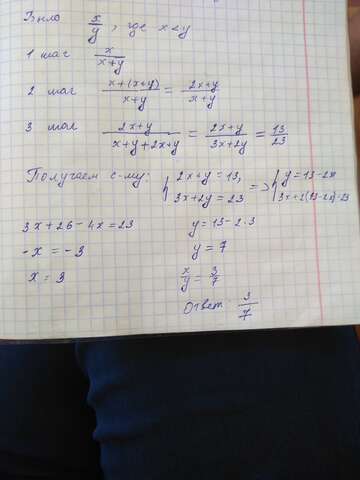 Было x/y, где x<y
1 шаг x/(x+y)
2 шаг (x+(x+y))/(x+y) = (2x+y)/(x+y)
3 шаг (2x+y)/(x+y+2x+y) = (2x+y)/(3x+2y) = 13/23
Получаем с-му: { 2x+y=13, 3x+2y=23 => { y=13-2x 3x+2(13-2x)=23
3x+26-4x=23 y=13-2·3
-x=-3 y=7
x=3 x/y=3/7
Ответ: 3/7